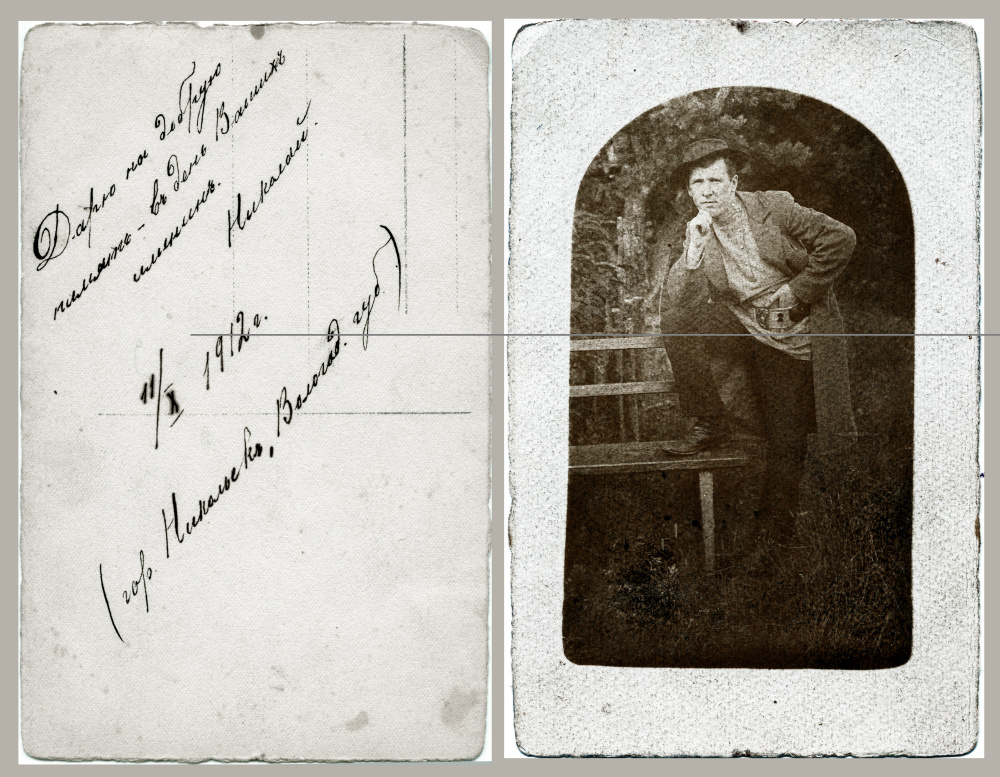 Дарю на добрую
память - въ день Вашихъ
имянинъ.
Николай.
11/X 1912 г.
(гор. Никольскъ, Вологод. губ.)